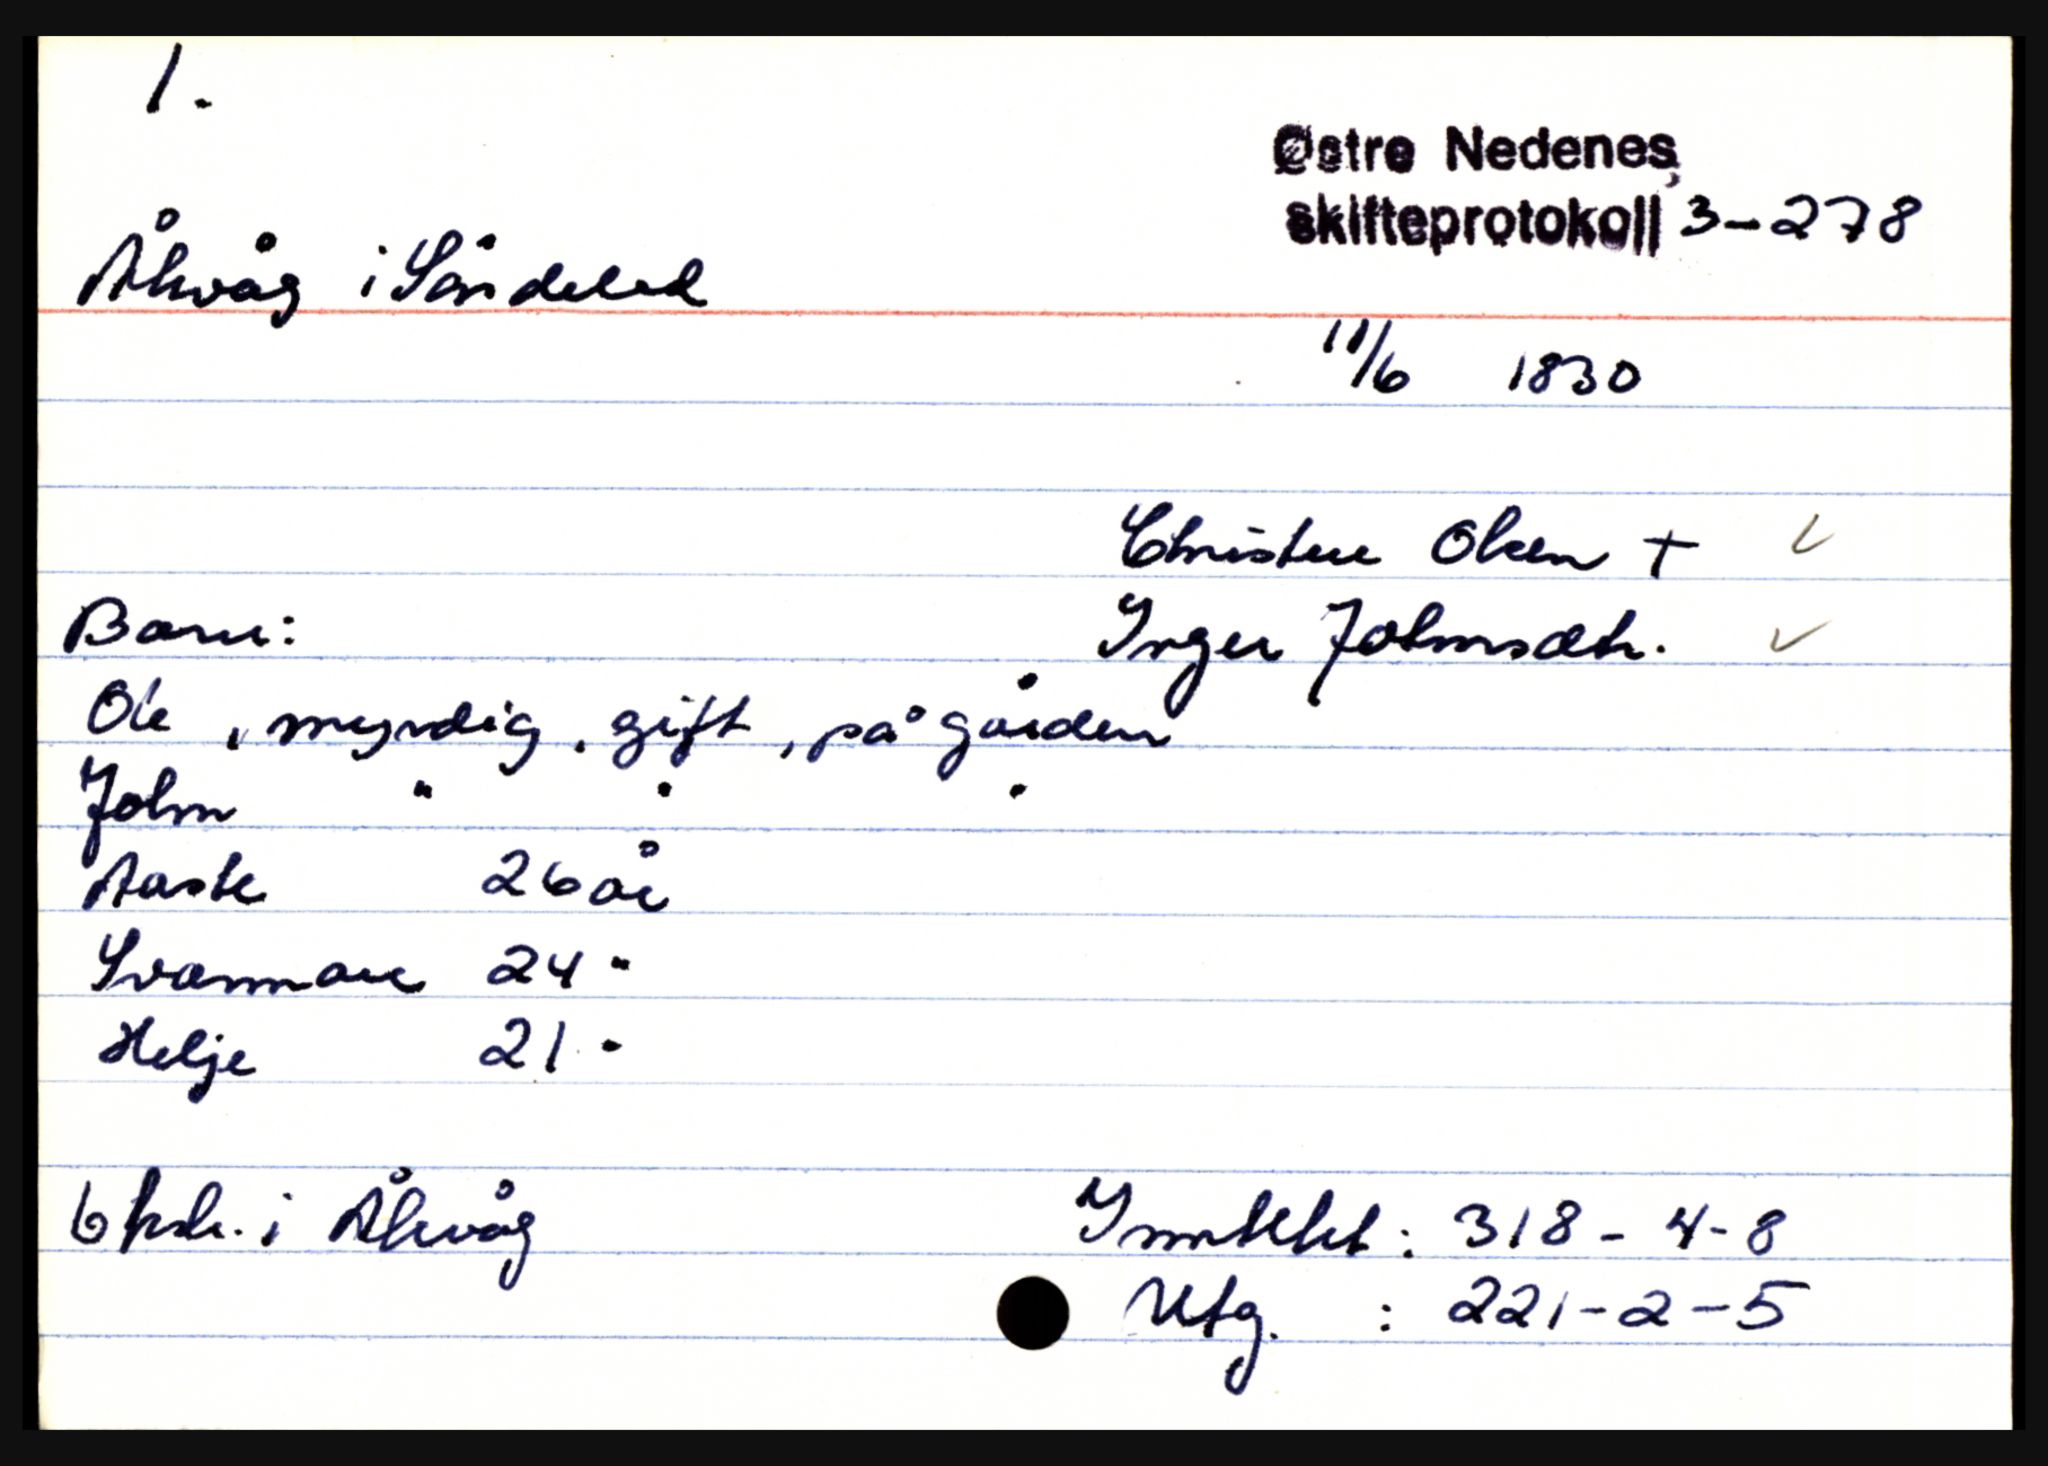 1.
Østre Nedenes,
skifteprotokoll 3-278
Åkvåg i Søndeled
11/6 1830
Christen Olsen +
Barn:
Inger Johnsdtr.
Ole, myndig, gift, på gården
John " " "
Aaste 26 år
Svannaue 24 "
Helje 21 "
6 hsk. i Åkvåg
Inntekt: 318-4-8
Utg. : 221-2-5